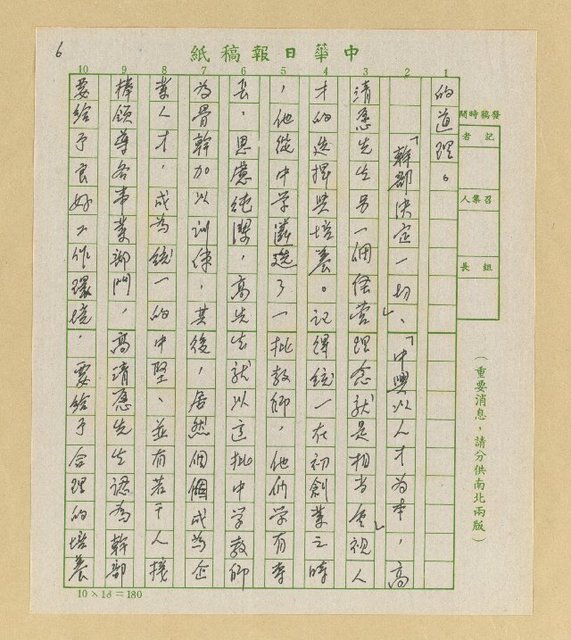 6
中華日報稿紙
發稿時間
記者
召集人
組長
（重要消息，請分供南北兩版）
1 2 3 4 5 6 7 8 9 10
的道理。
「幹部決定一切」、「中興以人才為本」，高
清愿先生另一個經營理念就是相當重視人
才的選擇與培養。記得統一在初創業之時
，他從中學遴選了一批教師，他們學有專
長，思慮純潔，高先生就以這批中學教師
為骨幹加以訓練，其後，居然個個成為企
業人才，成為統一的中堅、並有若干人擔
棒領導各事業部門，高清愿先生認為幹部
要給予良好工作環境，要給予合理的培養
10×18=180